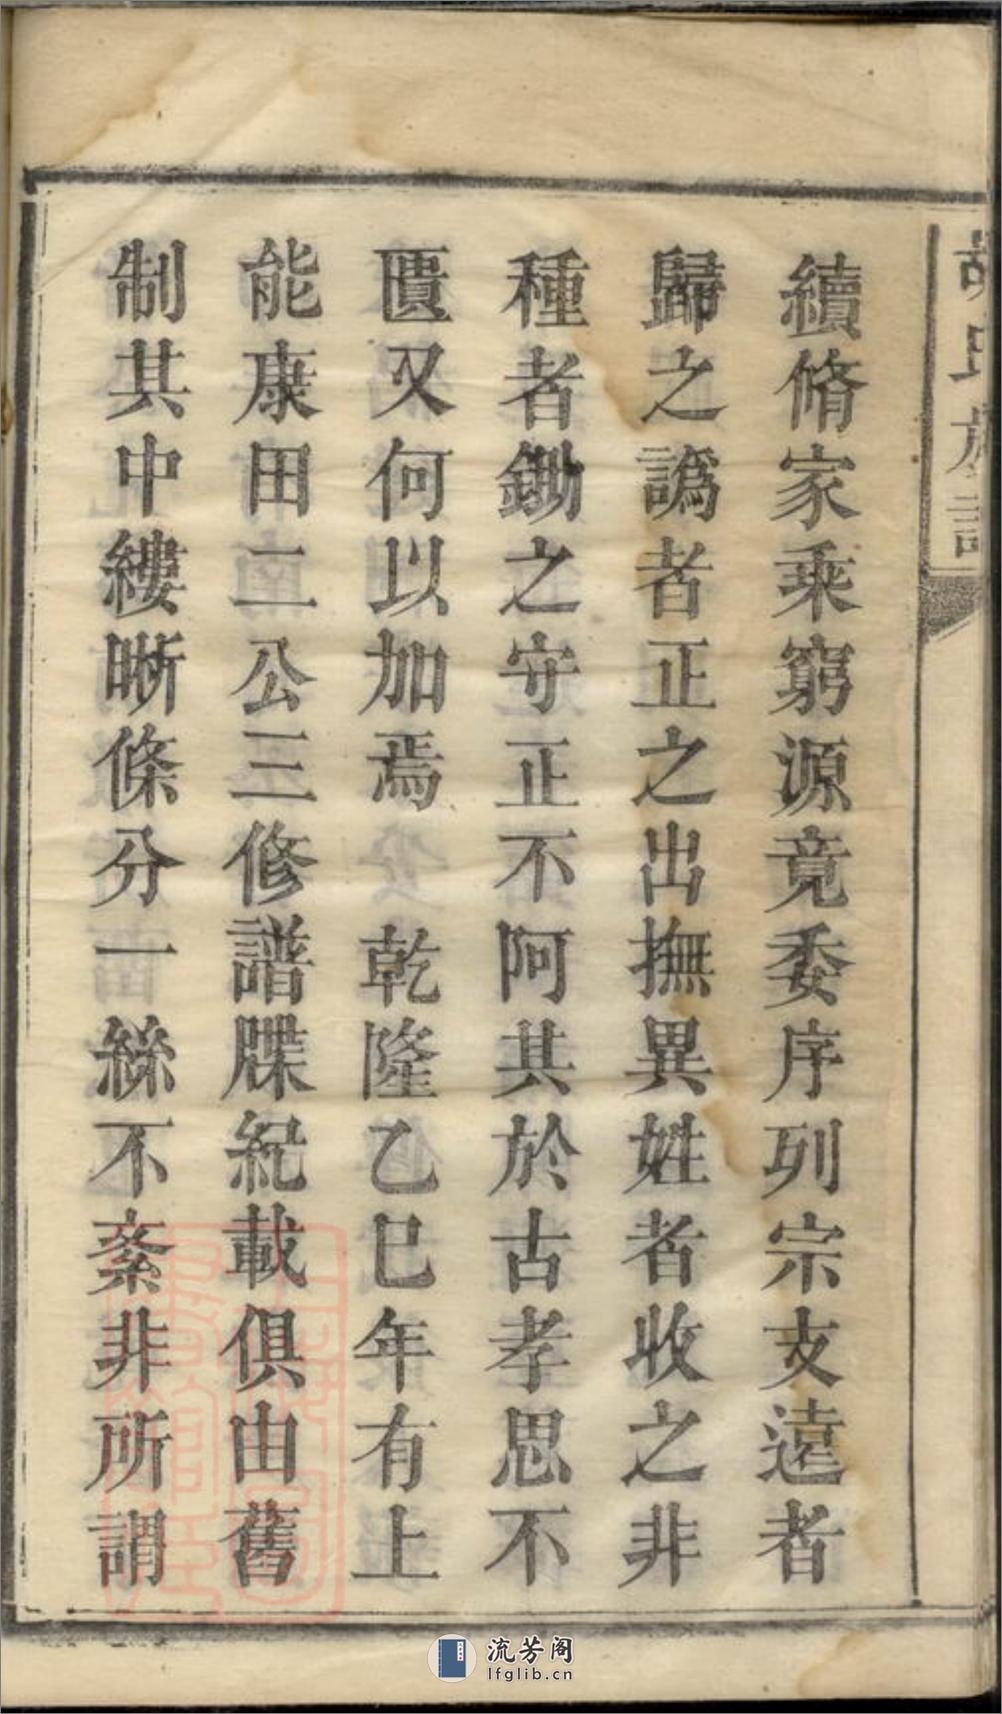 胡氏族譜
續脩家乘窮源竟委序列宗支遠者
歸之譌者正之出撫異姓者收之非
種者鋤之守正不阿其於古孝思不
匱又何以加焉　乾隆乙巳年有上
能康田二公三修譜牒紀載俱由舊
制其中縷晣條分一絲不紊非所謂
流芳阁
lfglib.cn